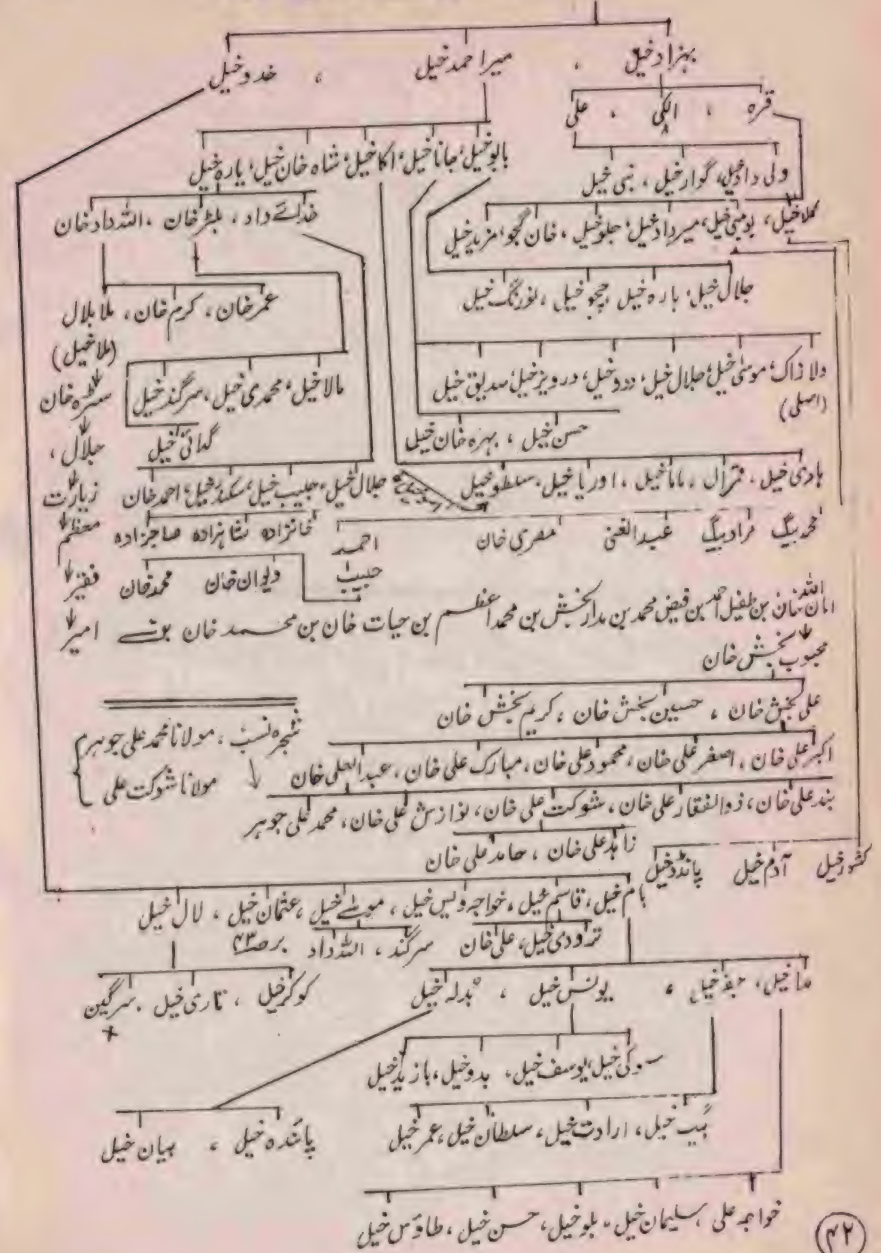 بہزادخیل ، میراحمدخیل ، خدوخیل
قرہ ، الکی ، علی
بابوخیل، جاناخیل، اکاخیل، شاہ خان خیل، یارہ خیل
ولی دادخیل، گوارخیل ، نبی خیل
خدائے داد ، بلہڑخان ، اللہ دادخان
کملاخیل، یومبی خیل، میردادخیل، جلوخیل ، خان گجو، مزیدخیل
جلال خیل، بارہ خیل ، چجوخیل ، نورنگ خیل
عمرخان ، کرم خان ، ملا بلال
(ملاخیل)
دلا زاک، موسیٰ خیل، جلال خیل، ددوخیل، درویزخیل، صدیق خیل
(اصلی)
مالاخیل، محمدی خیل، سرگندخیل
سمرہ خان
گدائی خیل
حسن خیل ، بہرہ خان خیل
جلال ،
ہادی خیل ، قترال ، ماماخیل ، اوریاخیل ، سلطوخیل
جلال خیل، حبیب خیل، سکندرخیل، احمدخان
زیارت
محمدبیگ مرادبیگ عبدالغنی مصری خان احمد
خانزادہ شاہزادہ صاحبزادہ
معظم
حبیب
دیوان خان محمدخان
فقیر
امان اللہ خان بن طفیل احمد بن فیض محمد بن مدار بخش بن محمد اعظم بن حیات خان بن محمد خان بونے
امیر
محبوب بخش خان
علی بخش خان ، حسین بخش خان ، کریم بخش خان
شجرہ نسب ، مولانا محمد علی جوہر
مولانا شوکت علی
اکبرعلی خان ، اصغرعلی خان ، محمودعلی خان ، مبارک علی خان ، عبدالعلی خان
بندعلی خان ، ذوالفقارعلی خان ، شوکت علی خان ، نوازش علی خان ، محمدعلی جوہر
زاہدعلی خان ، حامدعلی خان
کشورخیل آدم خیل پانڈدخیل
بام خیل، قاسم خیل، خواجہ ویس خیل ، موسےٰ خیل ، عثمان خیل ، لال خیل
تزودی خیل، علی خان سرگند ، اللہ داد برص۴۳
ماخیل، جفرخیل ، یونس خیل ، بدلہ خیل
کوکرخیل ، تاری خیل ، سرگین
سوکی خیل، یوسف خیل ، بدوخیل، بازیدخیل
ہیب خیل ، ارادت خیل ، سلطان خیل ، عمرخیل
پائندہ خیل ، بیان خیل
خواجہ علی ، سلیمان خیل ، بلوخیل ، حسن خیل ، طاؤس خیل
۴۲